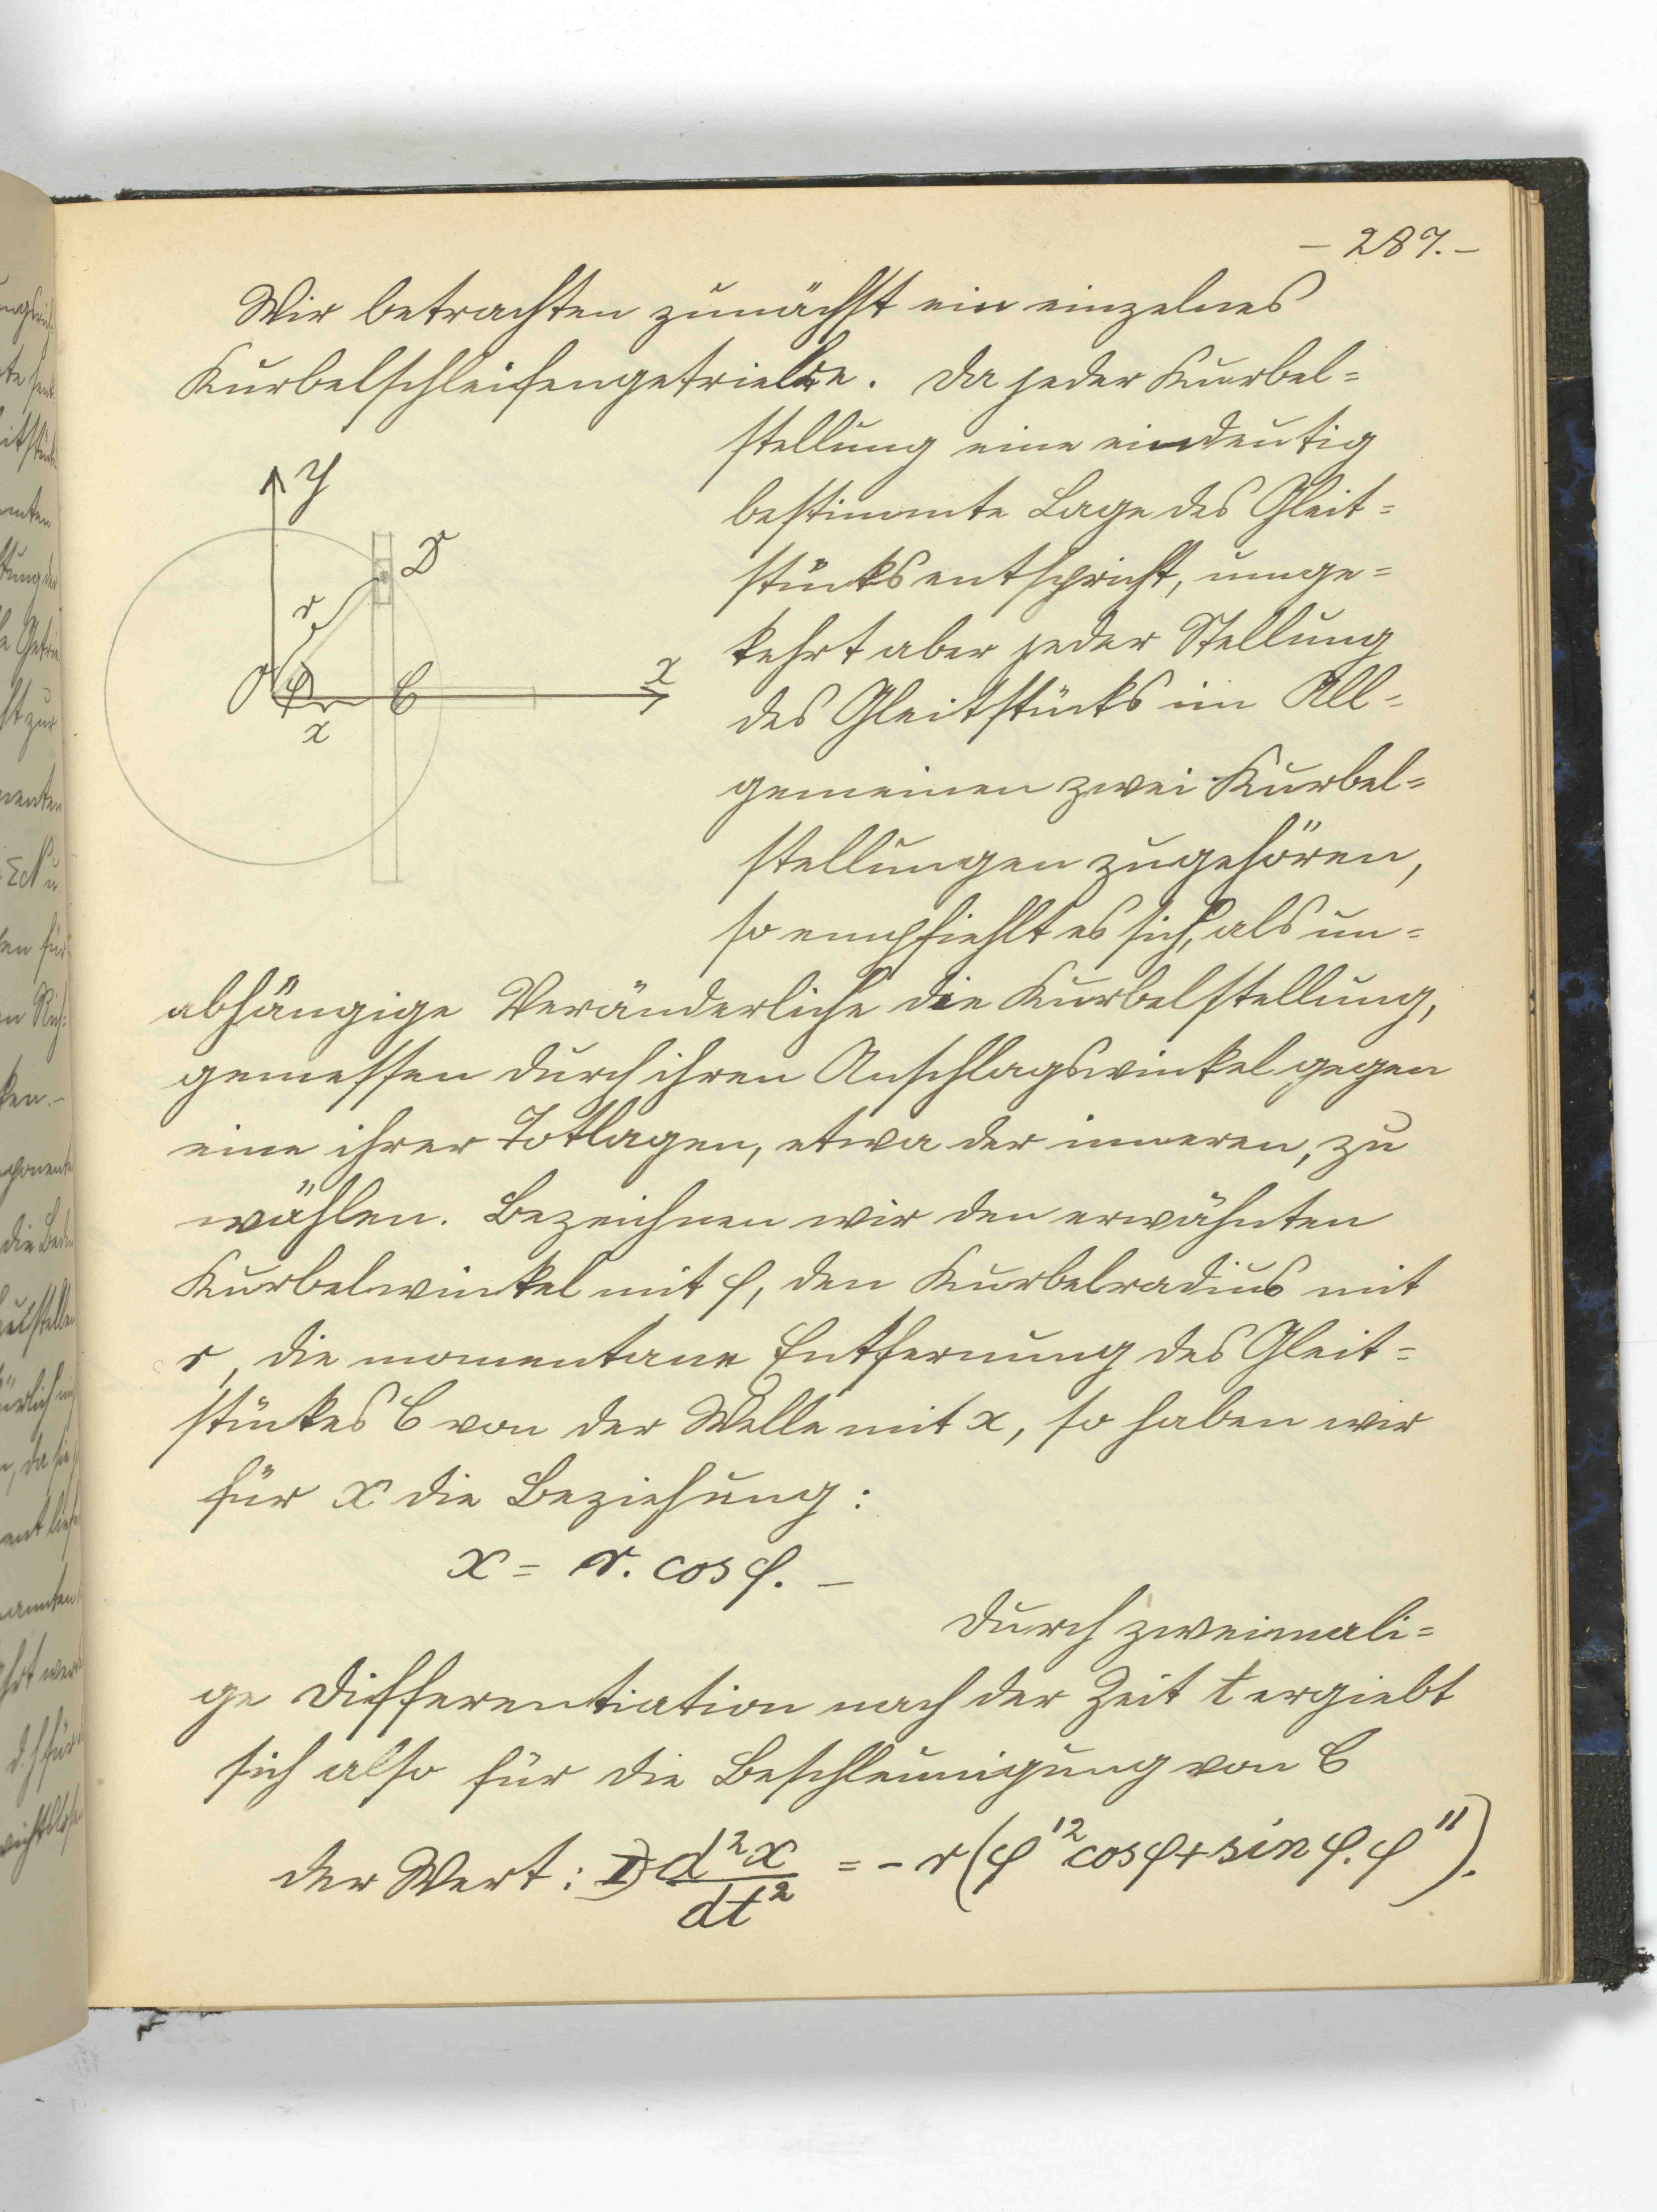 – 287. –
Wir betrachten zunächst ein einzelnes
Kurbelschleifengetriebe. Da jeder Kurbel=
stellung eine eindeutig
bestimmte Lage des Gleit=
stücks entspricht, umge=
kehrt aber jeder Stellung
des Gleitstücks im All=
gemeinen zwei Kurbel=
stellungen zugehören,
so empfiehlt es sich, als un=
y
D
r
O
φ
C
x
x
abhängige Veränderliche die Kurbelstellung,
gemessen durch ihren Anschlagswinkel gegen
eine ihrer Totlagen, etwa der inneren, zu
wählen. Bezeichnen wir den erwähnten
Kurbelwinkel mit φ, den Kurbelradius mit
r, die momentane Entfernung des Gleit=
stückes C von der Welle mit x, so haben wir
für x die Beziehung:
x = r. cos φ. –
Durch zweimali=
ge Differentiation nach der Zeit t ergiebt
sich also für die Beschleunigung von C
der Wert: I) d²x/dt² = – r (φ'² cos φ + sin φ. φ'').